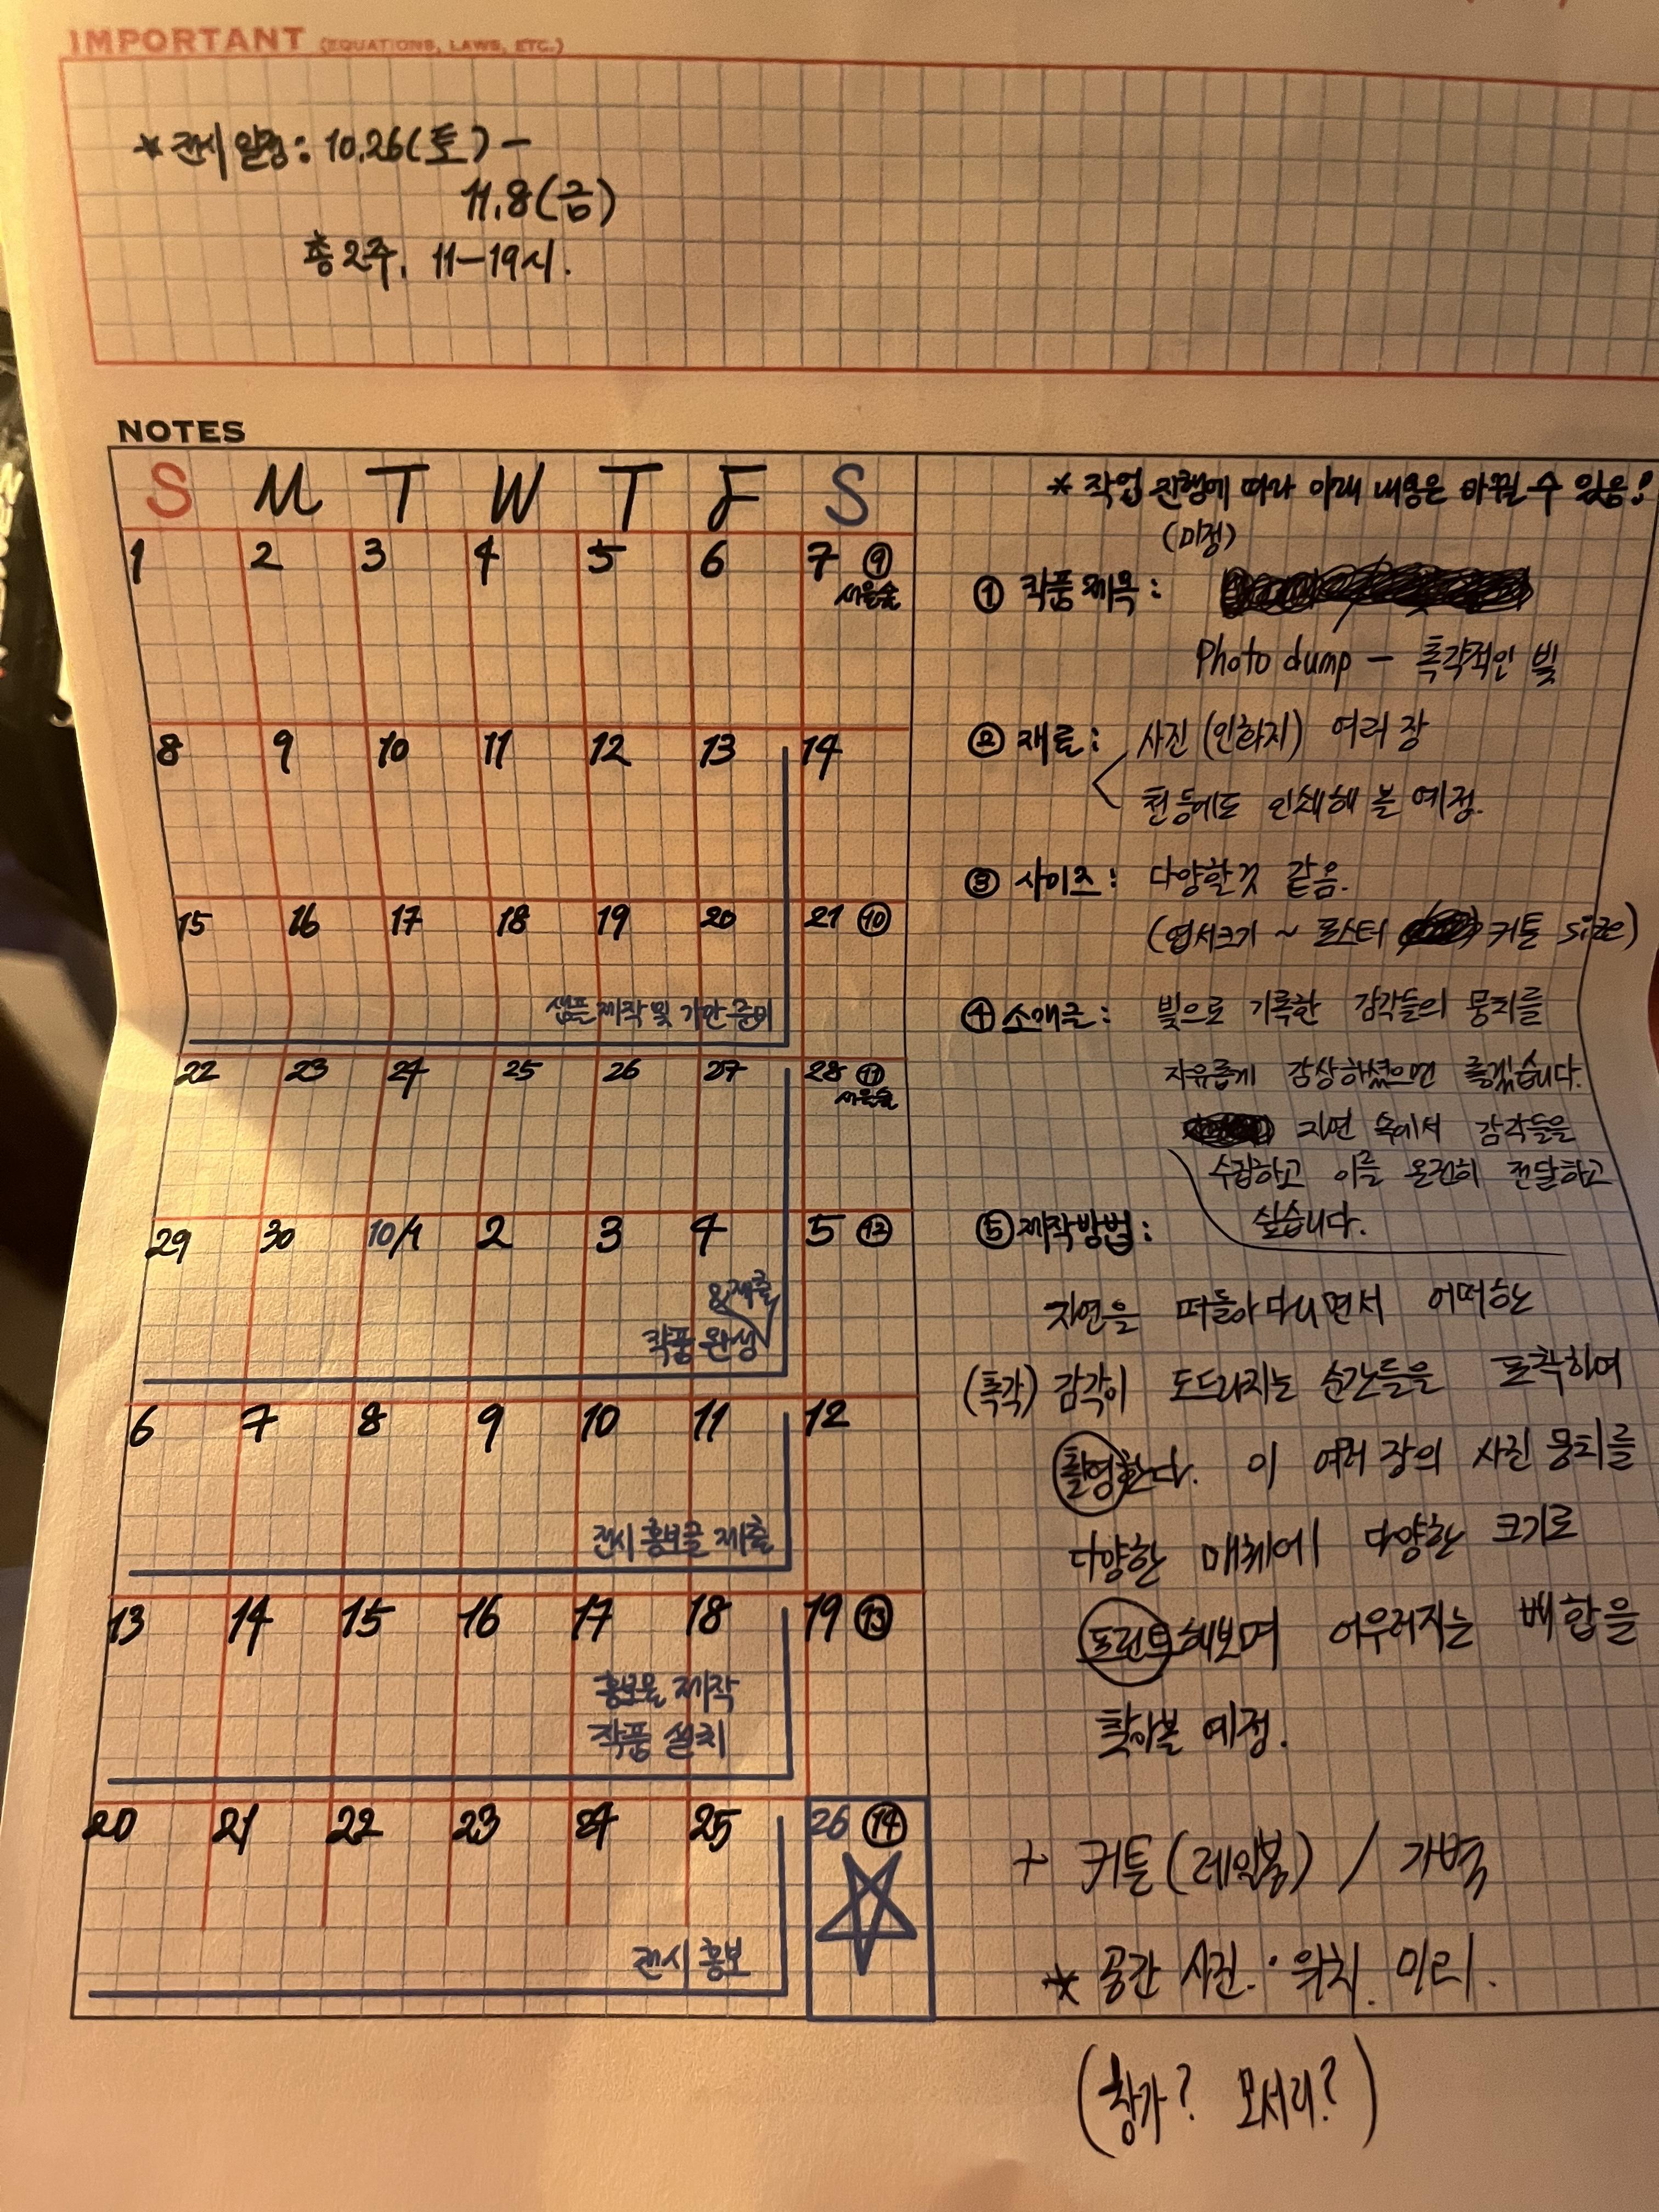 IMPORTANT (EQUATIONS, LAWS, ETC.)
* 전시 일정 : 10.26(토) -
11.8(금)
총 2주, 11-19시.
NOTES
S M T W T F S
1 2 3 4 5 6 7 ⑨
서울숲
8 9 10 11 12 13 14
15 16 17 18 19 20 21 ⑩
샘플 제작 및 가안 준비
22 23 24 25 26 27 28 ⑪
서울숲
29 30 10/1 2 3 4 5 ⑫
& 제출
작품 완성
6 7 8 9 10 11 12
전시 홍보글 제출
13 14 15 16 17 18 19 ⑬
홍보물 제작
작품 설치
20 21 22 23 24 25 26 ⑭
전시 홍보
* 작업 진행에 따라 아래 내용은 바뀔 수 있음!
(미정)
① 작품 제목 :
Photo dump - 촉각적인 빛
② 재료 : 사진 (인화지) 여러 장
천 등에도 인쇄해 볼 예정.
③ 사이즈 : 다양할것 같음.
(엽서크기 ~ 포스터 커튼 size)
④ 소개글 : 빛으로 기록한 감각들의 뭉치를
자유롭게 감상하셨으면 좋겠습니다.
자연 속에서 감각들을
수집하고 이를 온전히 전달하고
싶습니다.
⑤ 제작방법 :
자연을 떠돌아다니면서 어떠한
(촉각) 감각이 도드라지는 순간들을 포착하여
촬영한다. 이 여러 장의 사진 뭉치를
다양한 매체에 다양한 크기로
프린트해보며 어우러지는 배합을
찾아볼 예정.
+ 커튼(레일봉) / 가벽
* 공간 사진. · 위치. 미리.
(창가? 모서리?)